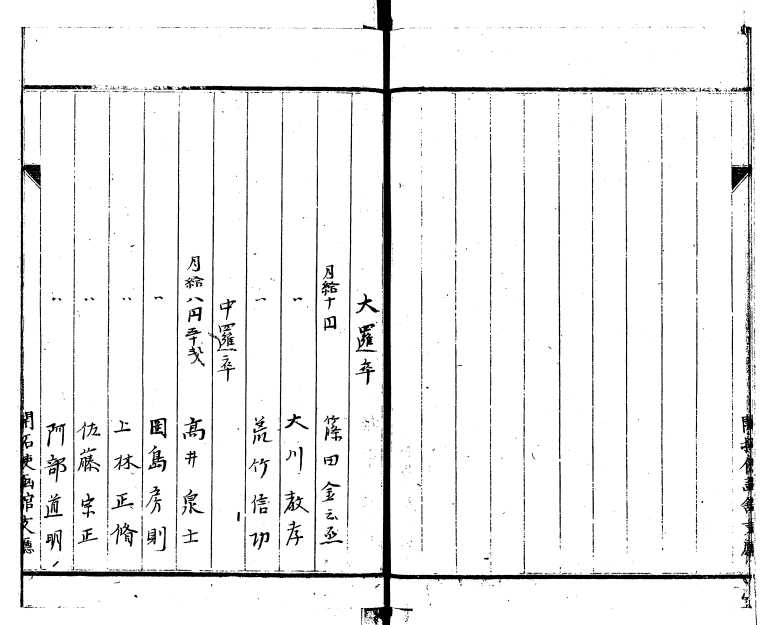 大邏卒
月給十円 篠田金之丞
〃 大川教孝
〃 荒竹信功
中邏卒
月給八円五十戋 高井泉士
〃 岡島房則
〃 上林正脩
〃 佐藤宗正
〃 阿部道明
開拓使函館支廳